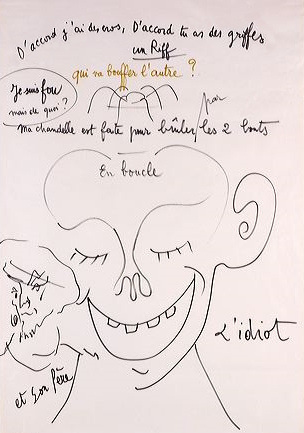 D'accord j'ai des crocs, D'accord tu as des griffes
un Riff
qui va bouffer l'autre ?
Je suis fou
mais de quoi ?
par
Ma chandelle est faite pour brûler les 2 bouts
En boucle
L'idiot
et son Père